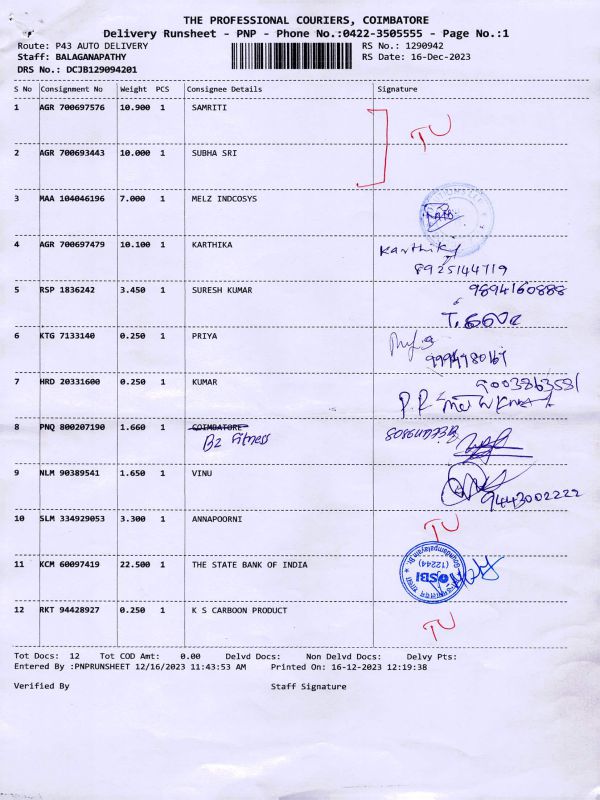 THE PROFESSIONAL COURIERS, COIMBATORE
Delivery Runsheet - PNP - Phone No.:0422-3505555 - Page No.:1
Route: P43 AUTO DELIVERY RS No.: 1290942
Staff: BALAGANAPATHY RS Date: 16-Dec-2023
DRS No.: DCJB129094201
S No Consignment No Weight PCS Consignee Details Signature
1 AGR 700697576 10.900 1 SAMRITI
TU
2 AGR 700693443 10.000 1 SUBHA SRI
3 MAA 104046196 7.000 1 MELZ INDCOSYS
4 AGR 700697479 10.100 1 KARTHIKA Karthika
8925144719
5 RSP 1836242 3.450 1 SURESH KUMAR 9894160888
6 KTG 7133140 0.250 1 PRIYA
7 HRD 20331600 0.250 1 KUMAR 9003863581
8 PNQ 800207190 1.660 1 COIMBATORE
B2 Fitness
9 NLM 90389541 1.650 1 VINU
9443002222
10 SLM 334929053 3.300 1 ANNAPOORNI TU
11 KCM 60097419 22.500 1 THE STATE BANK OF INDIA
(12244)
SBI
12 RKT 94428927 0.250 1 K S CARBOON PRODUCT TU
Tot Docs: 12 Tot COD Amt: 0.00 Delvd Docs: Non Delvd Docs: Delvy Pts:
Entered By :PNPRUNSHEET 12/16/2023 11:43:53 AM Printed On: 16-12-2023 12:19:38
Verified By Staff Signature